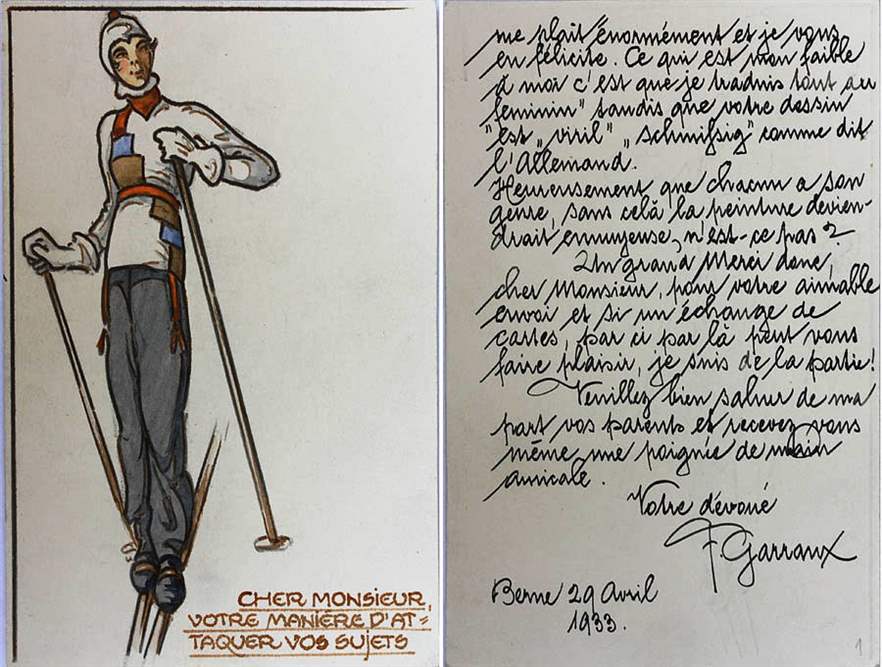 CHER MONSIEUR,
VOTRE MANIÈRE D'AT=
TAQUER VOS SUJETS
me plaît énormément et je vous
en félicite. Ce qui est mon faible
à moi c'est que je traduis tout au
feminin" tandis que votre dessin
"est „viril" „schmissig" comme dit
l'Allemand.
Heureusement que chacun a son
genre, sans celà la peinture devien-
drait ennuyeuse, n'est-ce pas?
Un grand Merci donc,
cher Monsieur, pour votre aimable
envoi et si un échange de
cartes, par ci par là peut vous
faire plaisir, je suis de la partie!
Veuillez bien saluer de ma
part vos parents et recevez vous
même une poignée de main
amicale.
Votre dévoué
F. Garraux
Berne 29 Avril
1933.
1